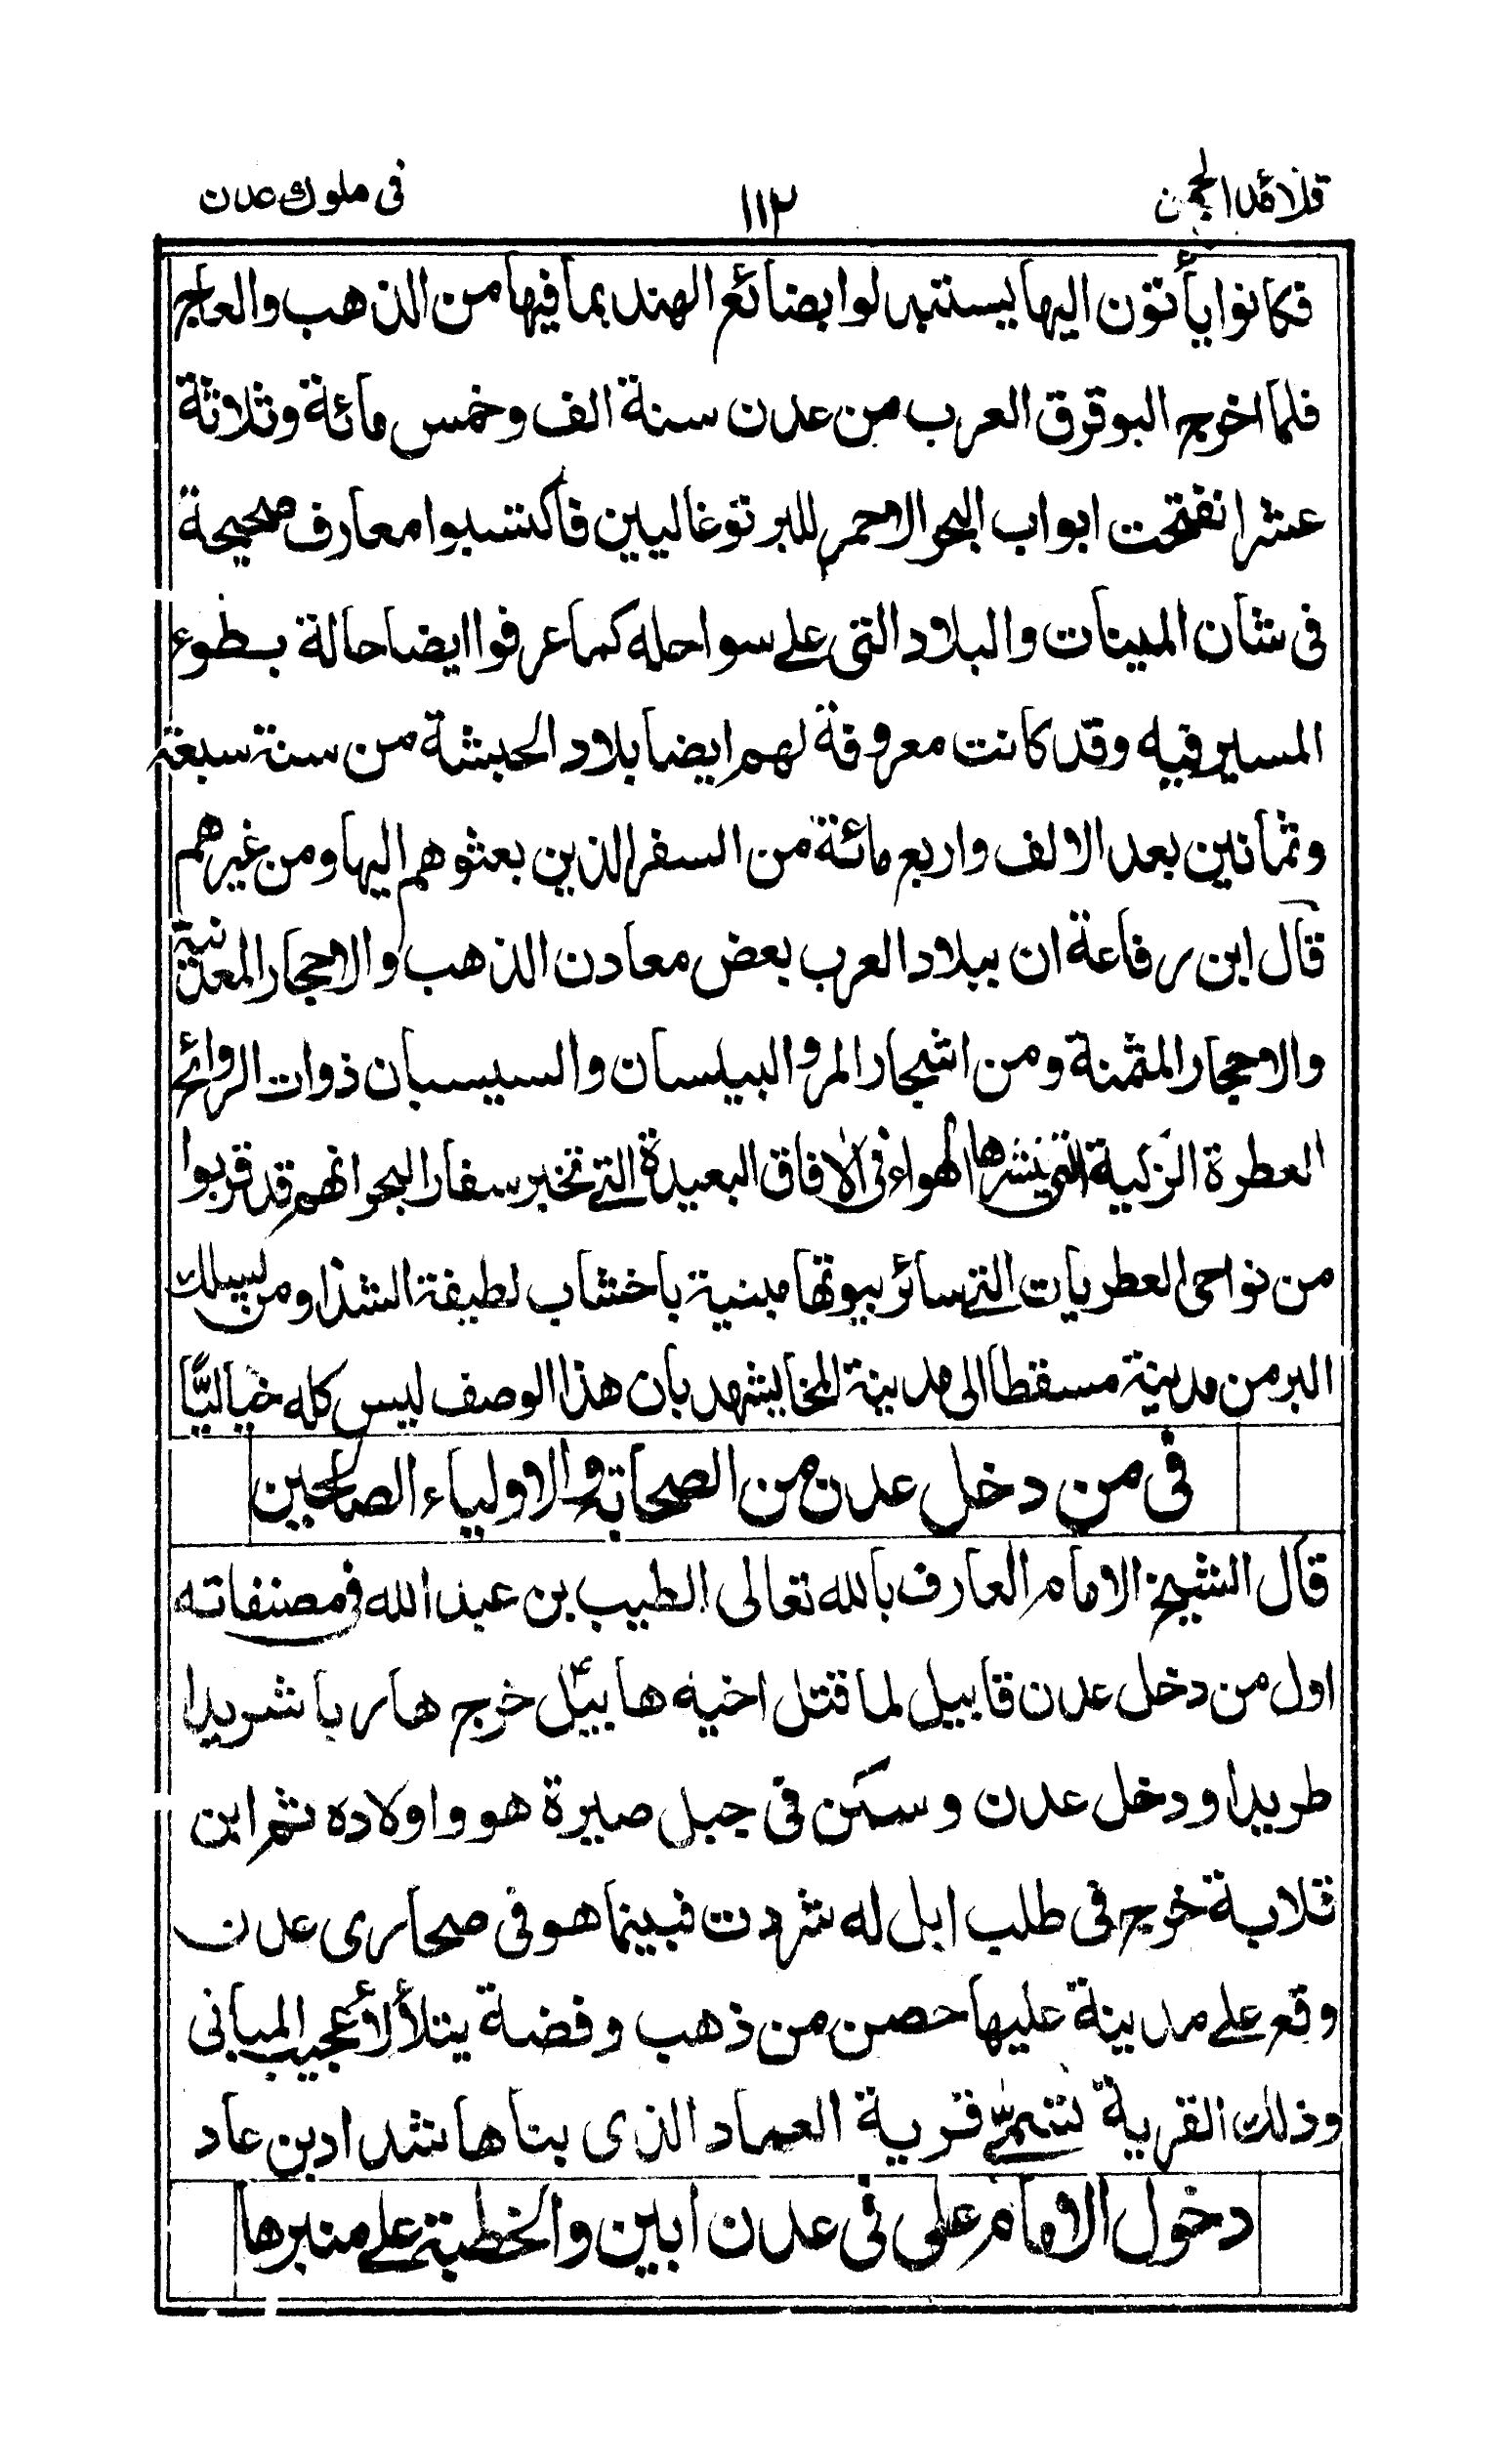 قلائد الجمن ١١٢ فى ملوك عدن
فكانوا يأتون اليها يستبدلوا بضائع الهند بما فيها من الذهب والعاج
فلما اخرج البوقرق العرب من عدن سنة الف وخمس مائة وثلاثة
عشر انفتحت ابواب البحر الاحمر للبرتوغاليين فاكتسبوا معارف صحيحة
فى شان المينات والبلاد التى على سواحله كما عرفوا ايضا حالة بطوء
المسير فيه وقد كانت معروفة لهم ايضا بلاد الحبشة من سنة سبعة
وثمانين بعد الالف واربع مائة من السفر الذين بعثوهم اليها ومن غيرهم
قال ابن رفاعة ان ببلاد العرب بعض معادن الذهب والاحجار المعدنية
والاحجار المثمنة ومن اشجار المر والبيلسان والسيسبان ذوات الروائح
العطرة الزكية التى ينشرها الهواء فى الافاق البعيدة التى تخبر سفار البحر انهم قد قربوا
من نواحى العطريات التى سائر بيوتها مبنية باخشاب لطيفة الشذا ومن يسلك
البر من مدينة مسقط الى مدينة المخا يشهد بان هذا الوصف ليس كله خياليًّا
فى من دخل عدن من الصحابة والاولياء الصالحين
قال الشيخ الامام العارف بالله تعالى الطيب بن عبد الله فى مصنفاته
اول من دخل عدن قابيل لما قتل اخيه هابيل خرج هاربا شريدا
طريدا ودخل عدن وسكن فى جبل صيرة هو واولاده ثم ابن
قلابة خرج فى طلب ابل له شردت فبينما هو فى صحارى عدن
وقع على مدينة عليها حصن من ذهب وفضة يتلألأ عجيب المبانى
وذلك القرية تسمى قرية العماد الذى بناها شداد بن عاد
دخول الامام على فى عدن ابين والخطبة على منبرها